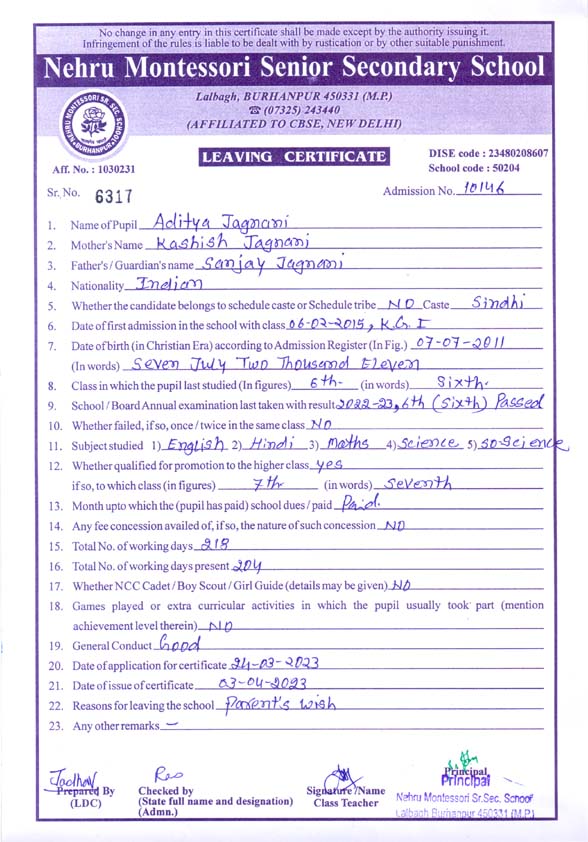 No change in any entry in this certificate shall be made except by the authority issuing it.
Infringement of the rules is liable to be dealt with by rustication or by other suitable punishment.
Nehru Montessori Senior Secondary School
Lalbagh, BURHANPUR 450331 (M.P.)
☎ (07325) 243440
(AFFILIATED TO CBSE, NEW DELHI)
NEHRU MONTESSORI SR. SEC. SCHOOL
BURHANPUR
LEAVING CERTIFICATE
DISE code : 23480208607
School code : 50204
Aff. No. : 1030231
Sr. No. 6317
Admission No. 10146
1. Name of Pupil Aditya Jagnani
2. Mother's Name Kashish Jagnani
3. Father's / Guardian's name Sanjay Jagnani
4. Nationality Indian
5. Whether the candidate belongs to schedule caste or Schedule tribe NO Caste Sindhi
6. Date of first admission in the school with class 06-02-2015, K.G. I
7. Date of birth (in Christian Era) according to Admission Register (In Fig.) 07-07-2011
(In words) Seven July Two Thousand Eleven
8. Class in which the pupil last studied (In figures) 6th (in words) Sixth
9. School / Board Annual examination last taken with result 2022-23, 6th (Sixth) Passed
10. Whether failed, if so, once / twice in the same class NO
11. Subject studied 1) English 2) Hindi 3) Maths 4) Science 5) SO Science
12. Whether qualified for promotion to the higher class yes
if so, to which class (in figures) 7th (in words) Seventh
13. Month upto which the (pupil has paid) school dues / paid Paid.
14. Any fee concession availed of, if so, the nature of such concession NO
15. Total No. of working days 218
16. Total No. of working days present 204
17. Whether NCC Cadet / Boy Scout / Girl Guide (details may be given) NO
18. Games played or extra curricular activities in which the pupil usually took part (mention
achievement level therein) NO
19. General Conduct Good
20. Date of application for certificate 24-03-2023
21. Date of issue of certificate 03-04-2023
22. Reasons for leaving the school Parent's wish
23. Any other remarks —
Prepared By
(LDC)
Checked by
(State full name and designation)
(Admn.)
Signature /Name
Class Teacher
Principal
Principal
Nehru Montessori Sr.Sec. School
Lalbagh Burhanpur 450331 (M.P.)